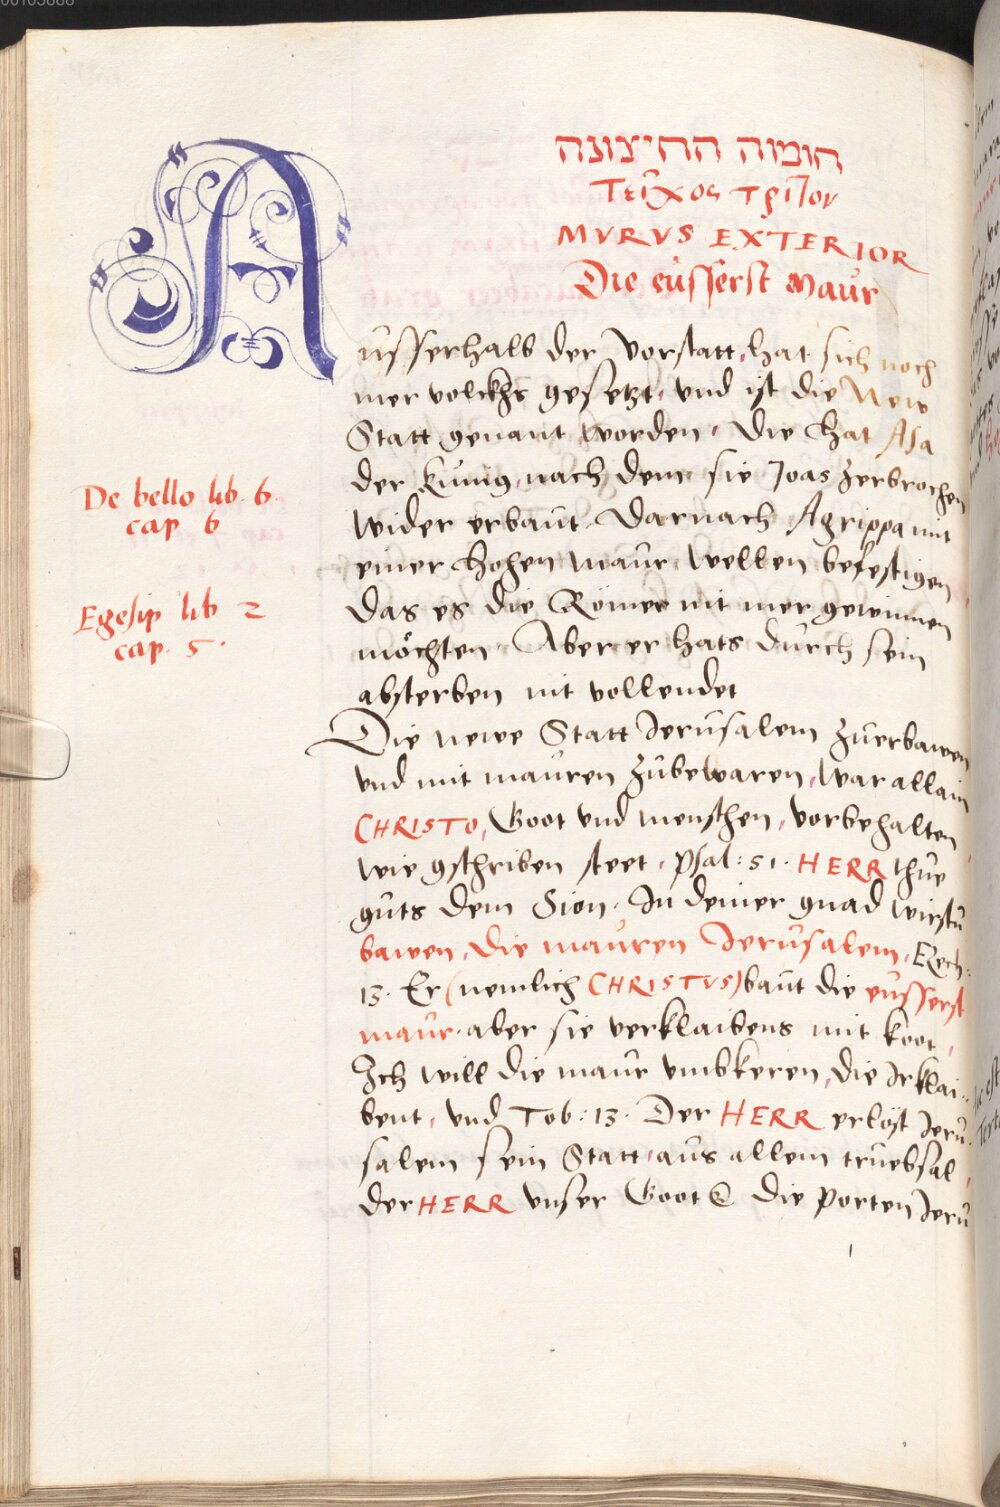 חומוה החיצונה
Τεῖχος τρίτον
MVRVS EXTERIOR
Die eüsserst Maur
Ausserhalb der Vorstatt, hat sich noch
mer volckhs gesetzt, vnd ist die New
Statt genant worden, Die hat Asa
der Kunig, nach dem sie Joas zerbrochen
wider erbaut. Darnach Agrippa mit
einer hohen maur wellen befestigen
das es die Römer nit mer gewinnen
möchten. Aber er hats durch sein
absterben nit vollendet
De bello lib. 6.
cap 6
Egesip lib 2
cap. 5.
Die newe Statt Jerusalem zuerbawen
vnd mit mauren zubewaren, war allain
CHRISTO, Goot vnd menschen, vorbehalten
wie gschriben steet, psal: 51. HERR thue
guts dem Sion. In deiner gnad wirstu
bawen, die mauren Jerusalem, Ezech:
13. Er (nemlich CHRISTVS) baut die eusserst
maur. aber sie verklaibens mit koot,
Ich will die maur vmbkeren, die Ir klai:
bent, vnd Tob: 13. Der HERR erlöst Jeru:
salem sein Statt, aus allem truebsal,
der HERR vnser Goot & die porten Jeru